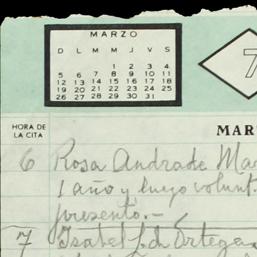 MARZO
D L M M J V S
1 2 3 4
5 6 7 8 9 10 11
12 13 14 15 16 17 18
19 20 21 22 23 24 25
26 27 28 29 30 31
7
HORA DE
LA CITA
MAR
6 Rosa Andrade Mar
1 año y luego volunt
presentó.-
7 Isabel J. de Ortega